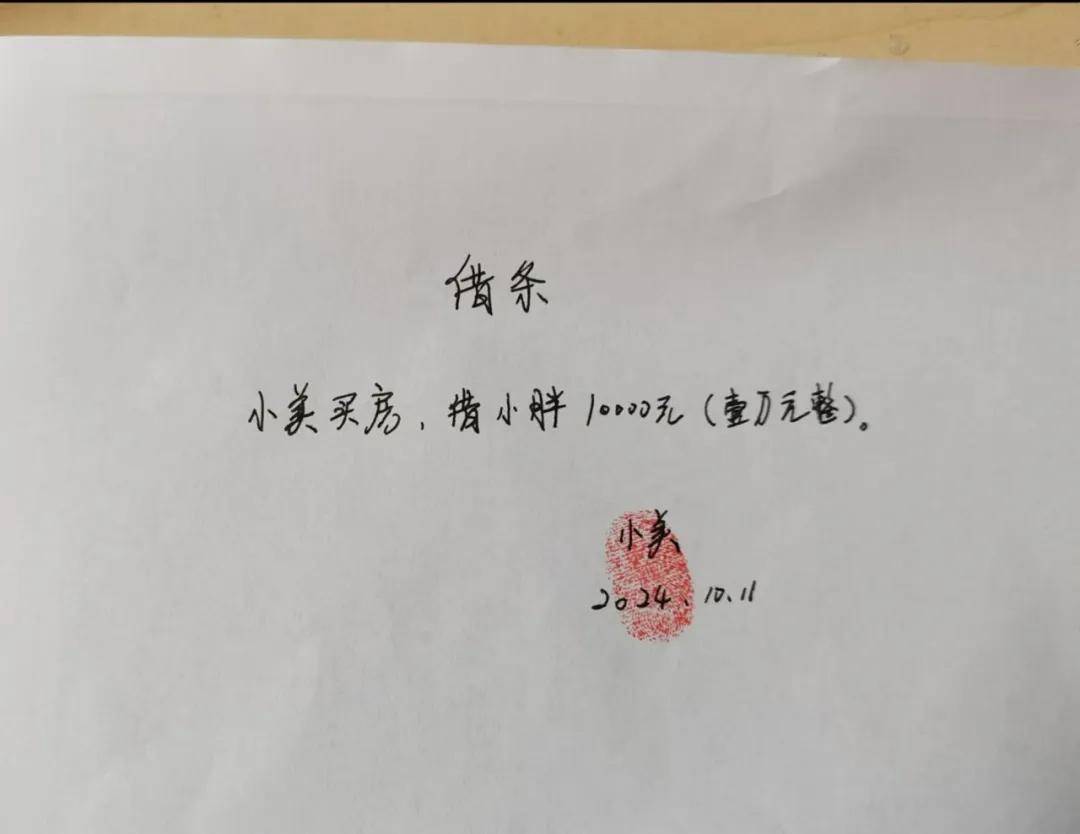 借条
小美买房，借小胖10000元（壹万元整）。
小美
2024.10.11